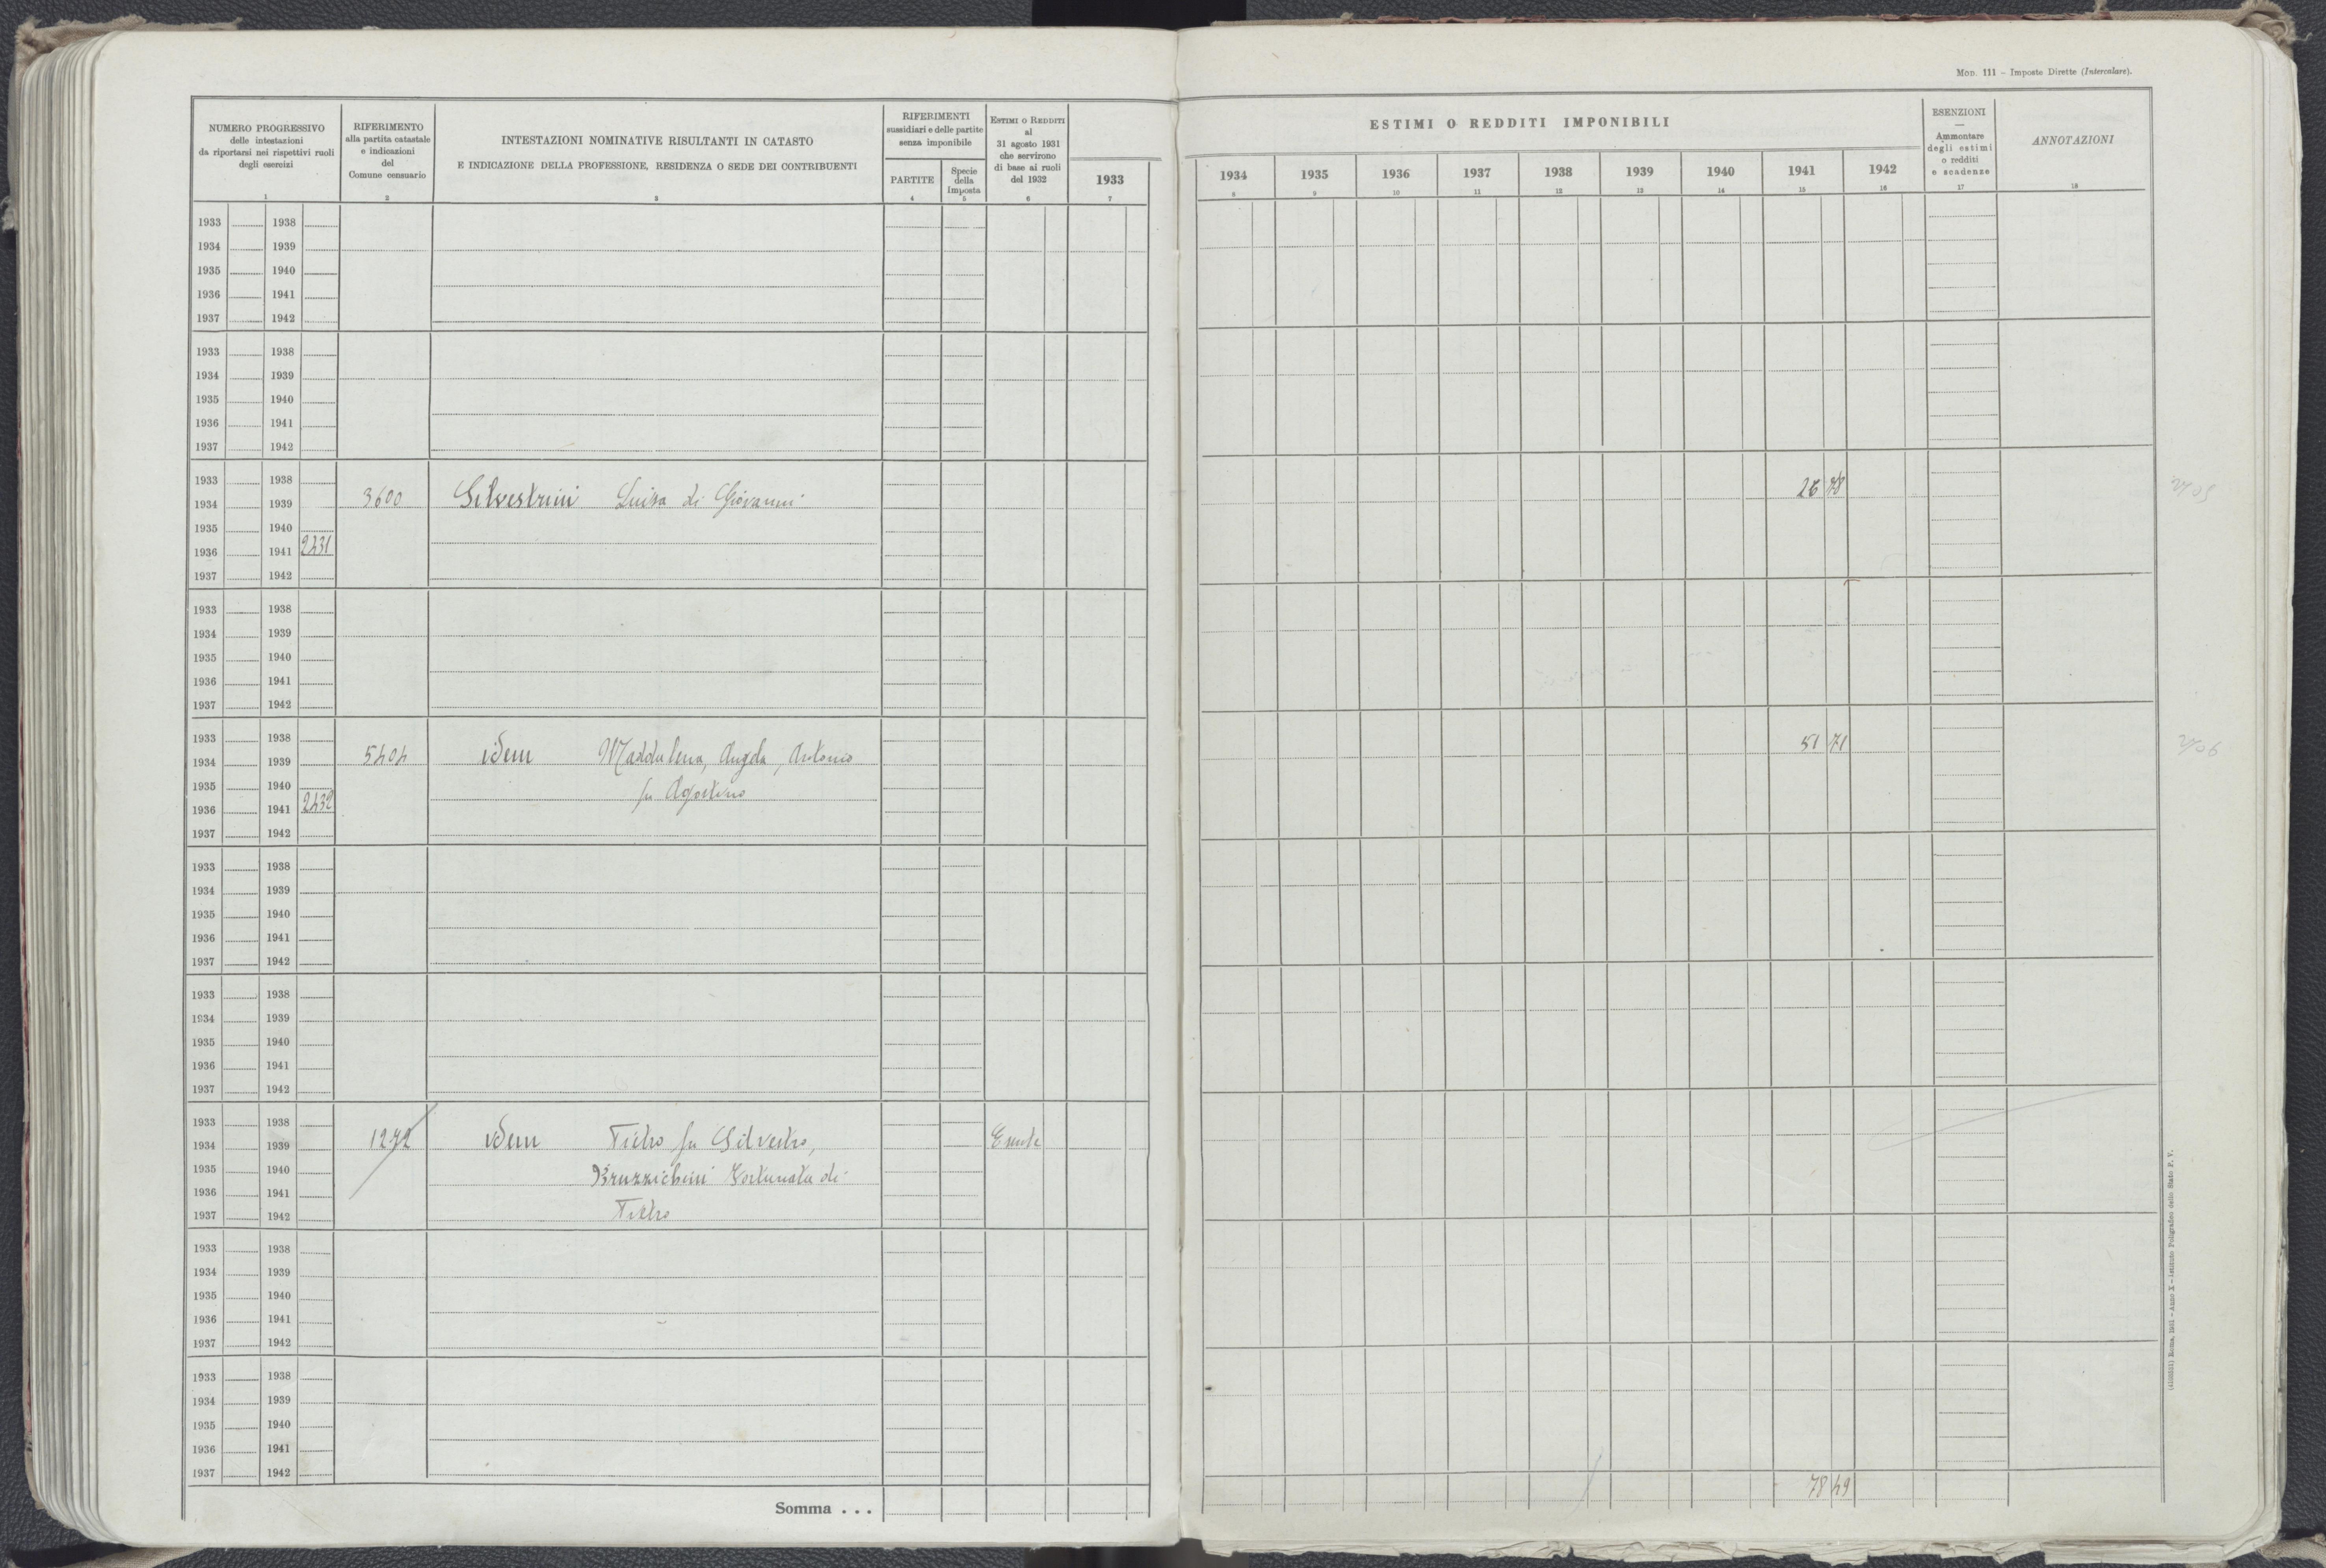 Mod. 111 - Imposte Dirette (Intercalare).
NUMERO PROGRESSIVO
delle intestazioni
da riportarsi nei rispettivi ruoli
degli esercizi
1
RIFERIMENTO
alla partita catastale
e indicazioni
del
Comune censuario
2
INTESTAZIONI NOMINATIVE RISULTANTI IN CATASTO
E INDICAZIONE DELLA PROFESSIONE, RESIDENZA O SEDE DEI CONTRIBUENTI
3
RIFERIMENTI
sussidiari e delle partite
senza imponibile
PARTITE
4
Specie
della
imposta
5
ESTIMI O REDDITI
al
31 agosto 1931
che servirono
di base ai ruoli
del 1932
6
1933
7
ESTIMI O REDDITI IMPONIBILI
1934 1935 1936 1937 1938 1939 1940 1941 1942
8 9 10 11 12 13 14 15 16
ESENZIONI
—
Ammontare
degli estimi
o redditi
e scadenze
17
ANNOTAZIONI
18
1933 1938
1934 1939
1935 1940
1936 1941
1937 1942
1933 1938
1934 1939
1935 1940
1936 1941
1937 1942
1933 1938
1934 1939 3600 Silvestrini Luisa di Giovanni 26 78
1935 1940
1936 1941 2431
1937 1942
1933 1938
1934 1939
1935 1940
1936 1941
1937 1942
1933 1938
1934 1939 5404 idem Maddalena, Angela, Antonio 51 71
1935 1940 fu Agostino
1936 1941 2432
1937 1942
1933 1938
1934 1939
1935 1940
1936 1941
1937 1942
1933 1938
1934 1939
1935 1940
1936 1941
1937 1942
1933 1938
1934 1939 1272 idem Pietro fu Silvestro, Esente
1935 1940 Bruzzichini Fortunata di
1936 1941
1937 1942 Pietro
1933 1938
1934 1939
1935 1940
1936 1941
1937 1942
1933 1938
1934 1939
1935 1940
1936 1941
1937 1942
Somma . . . 78 49